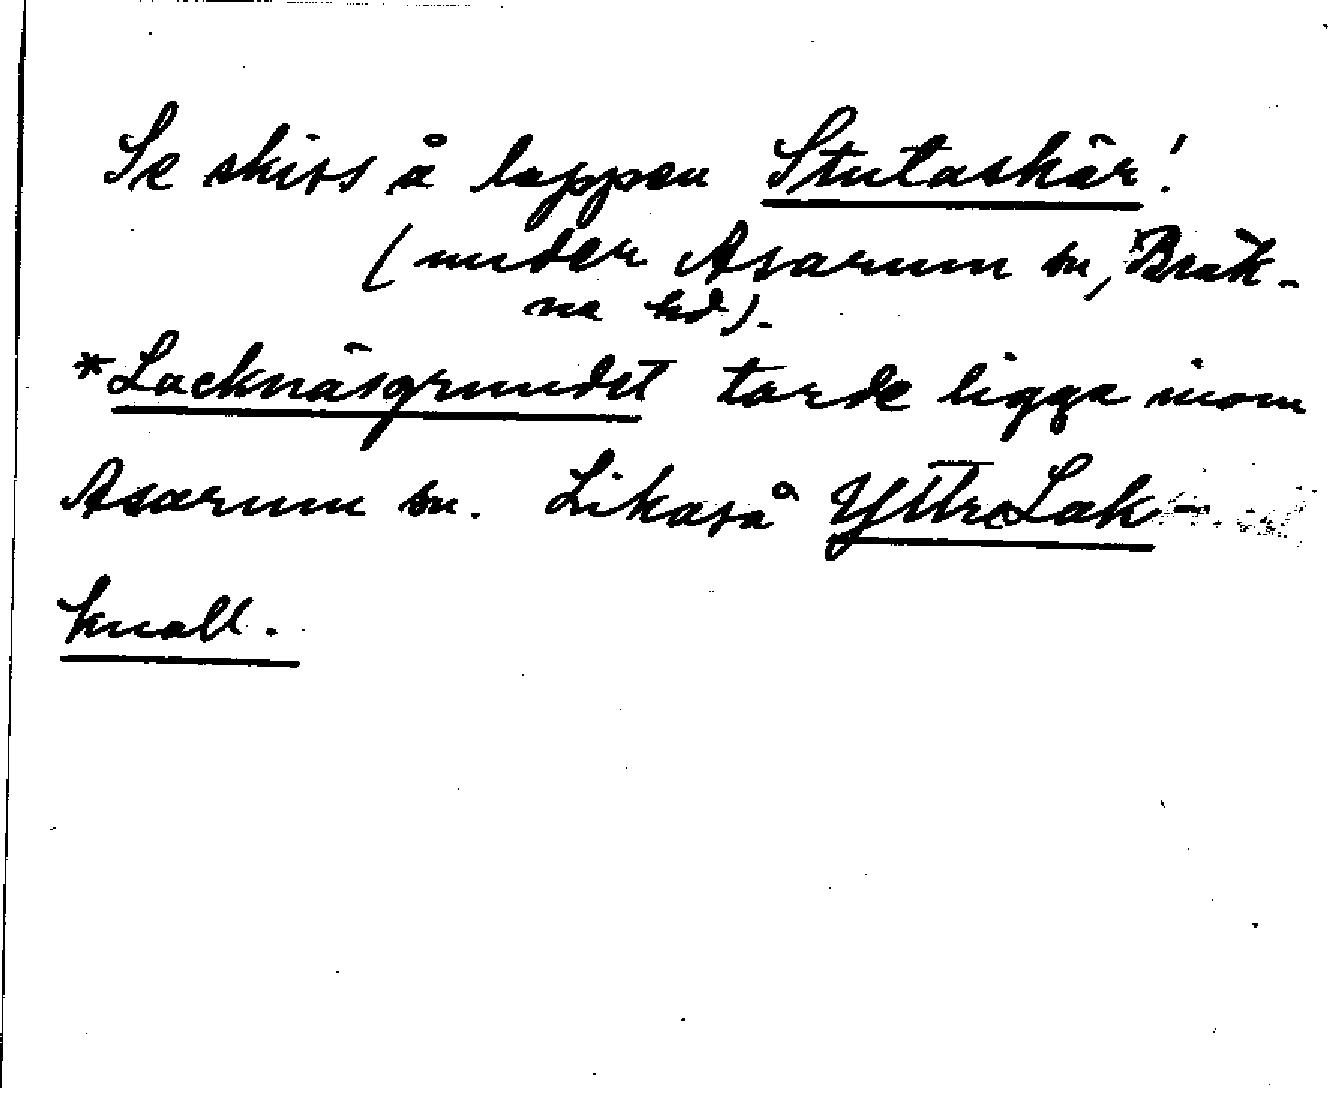 Se skiss å lappen Stutaskär!
(under Asarum sn, Bräk-
ne hd).
*Lacknäsgrundet torde ligga inom
Asarum sn. Likaså Yttre Lak-
knall.